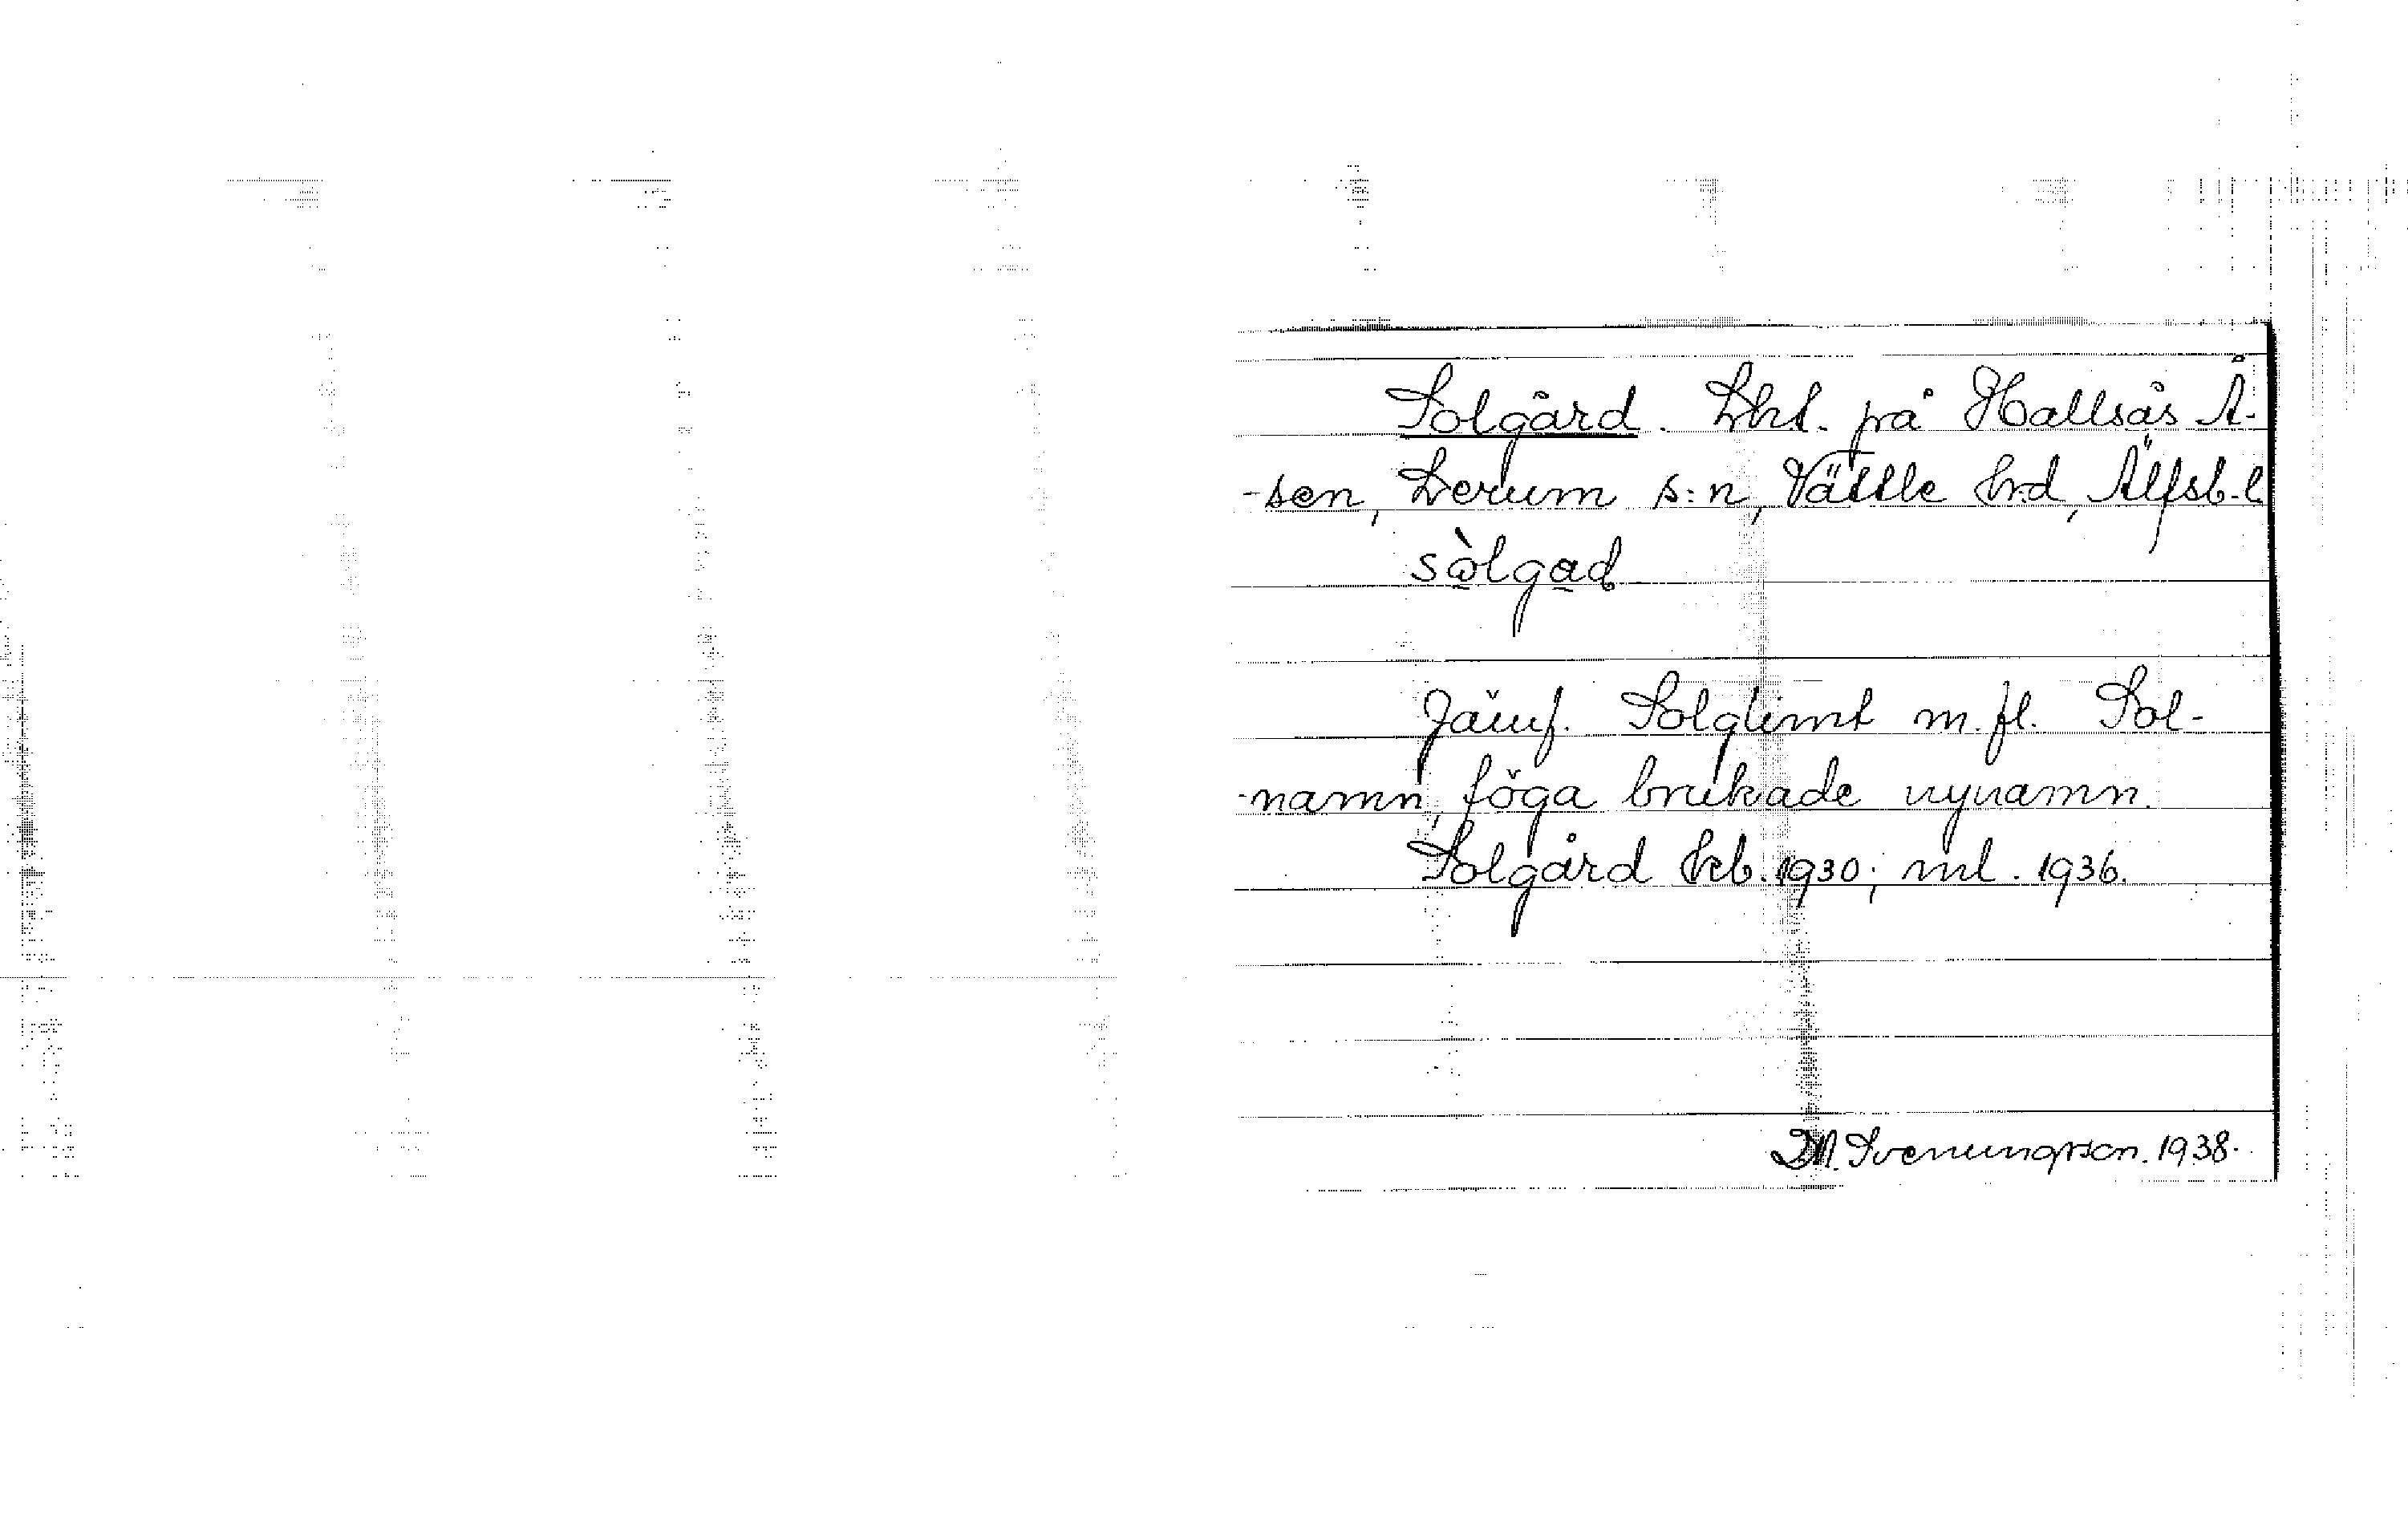 Solgård. Lht. på Hallsås Å-
-sen, Lerum s:n, Vättle hrd, Älfsb. l.
sòlgad
Jämf. Solglimt m. fl. Sol-
-namn, föga brukade nynamn.
Solgård kb. 1930; ml. 1936.
D.N. Svenungsson. 1938.